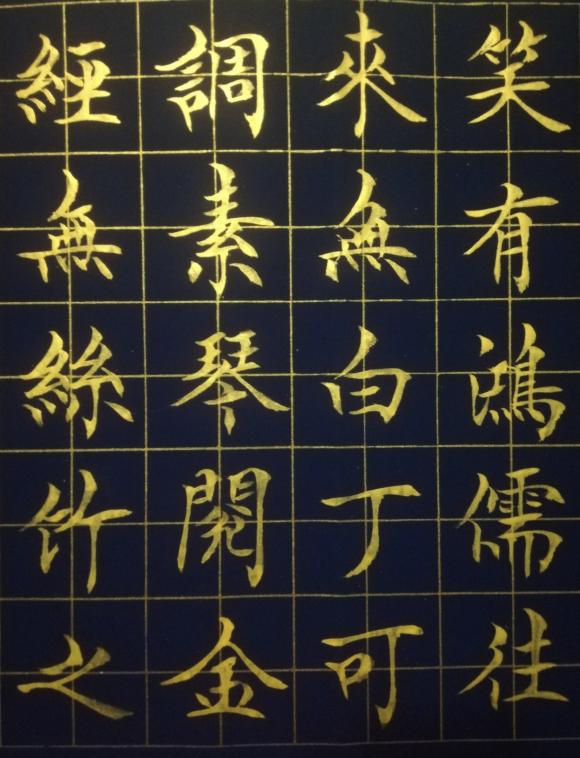 笑有鴻儒往
來無白丁可
調素琴閱金
經無絲竹之